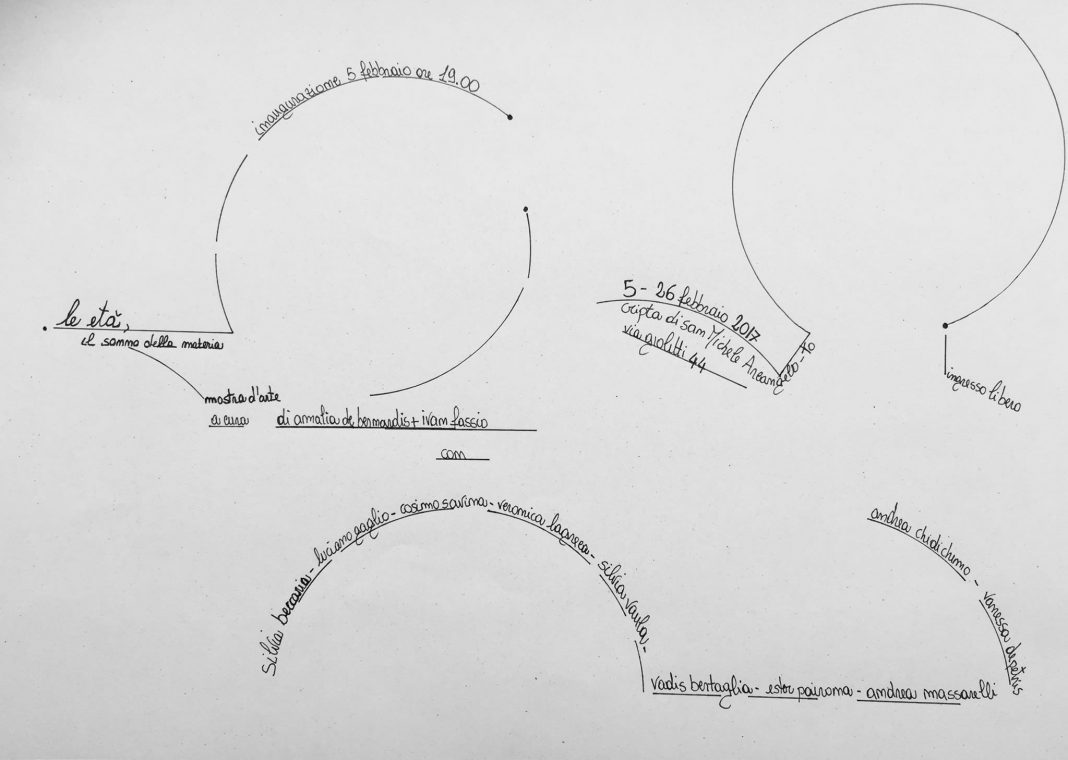 inaugurazione 5 febbraio ore 19.00
le età,
il sonno della materia
mostra d'arte
a cura di amalia de bernardis + ivan fassio
con
silvia beccaria - luciano gaglio - cosimo savina - veronica lagreca - silvia vaulà -
vadis bertaglia - ester pairona - andrea massarelli
andrea chidichimo - vanessa depetris
5 - 26 febbraio 2017
cripta di san Michele Arcangelo - to
via giolitti 44
ingresso libero